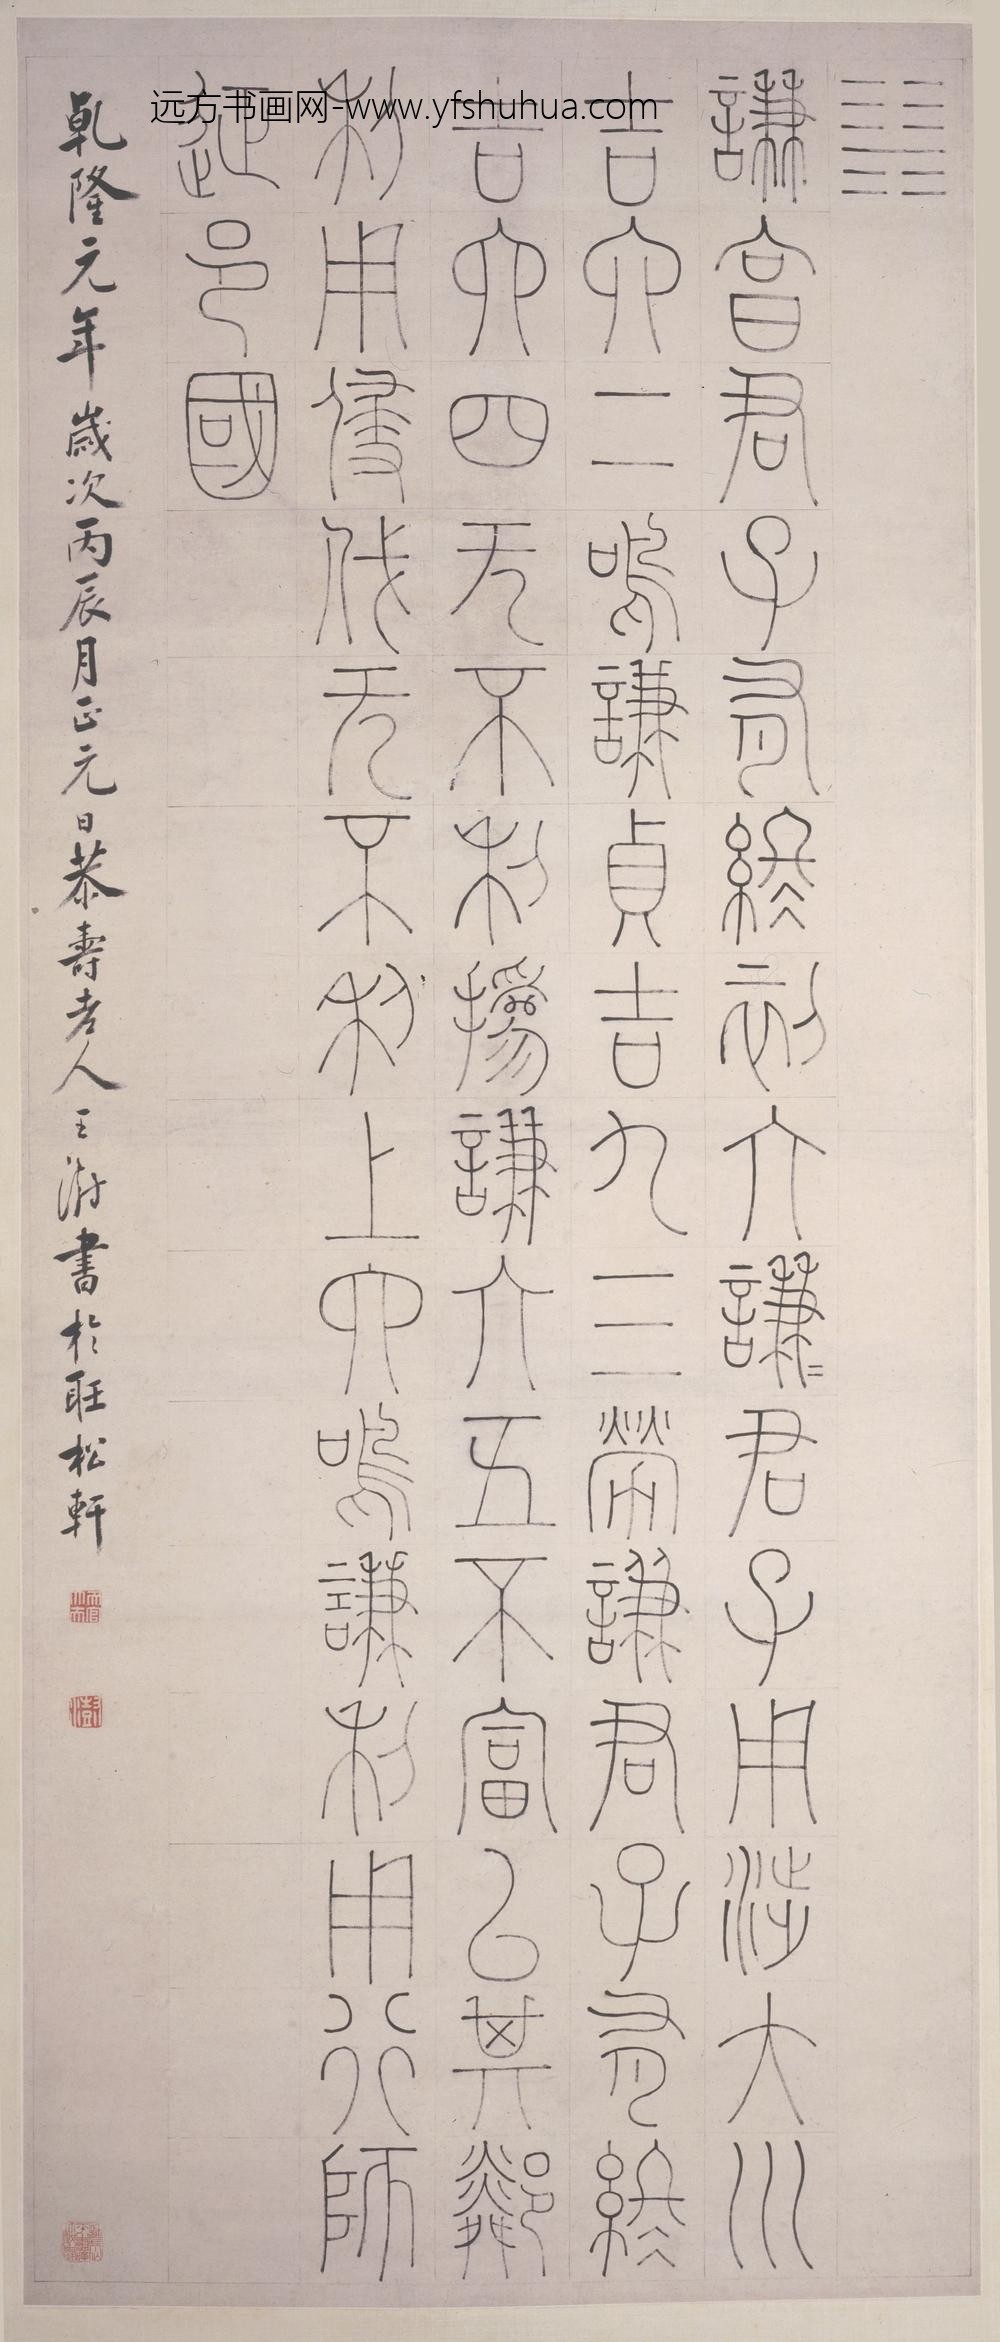 远方书画网-www.yfshuhua.com
謙亯君子有終初六謙〻君子用涉大川
吉六二鳴謙貞吉九三勞謙君子有終
吉六四无不利撝謙六五不富以其鄰
利用侵伐无不利上六鳴謙利用行師
征邑國
乾隆元年歲次丙辰月正元日恭壽老人王澍書於聽松軒